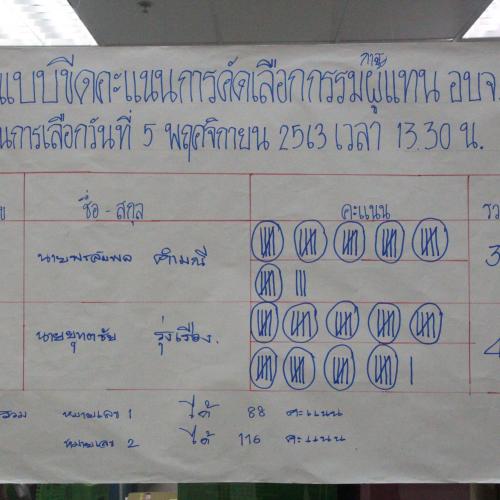 แบบขีดคะแนนการคัดเลือกกรรมการผู้แทน อบจ.
นการเลือกวันที่ 5 พฤศจิกายน 2563 เวลา 13.30 น.
ชื่อ - สกุล คะแนน รว
3
นายยุทธชัย รุ่งเรือง. 4
รวม หมายเลข 1 ได้ 88 คะแนน
หมายเลข 2 ได้ 116 คะแนน